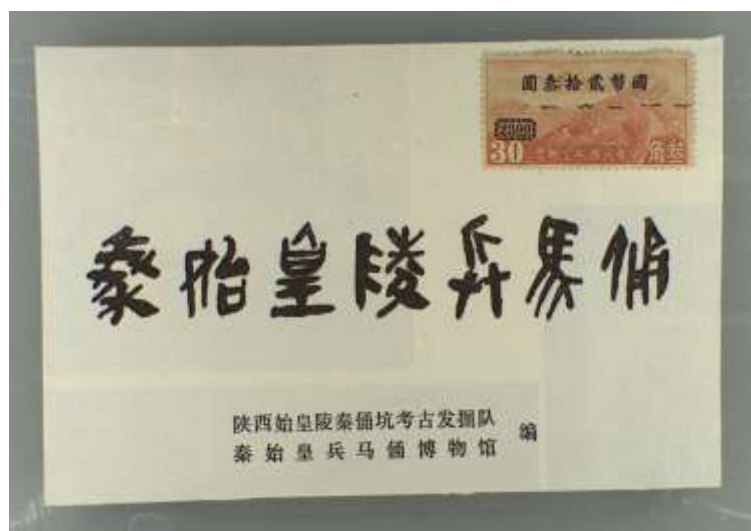 國幣貳拾叁圓
30
叁角
秦始皇陵兵馬俑
陕西始皇陵秦俑坑考古发掘队
秦始皇兵马俑博物馆
编